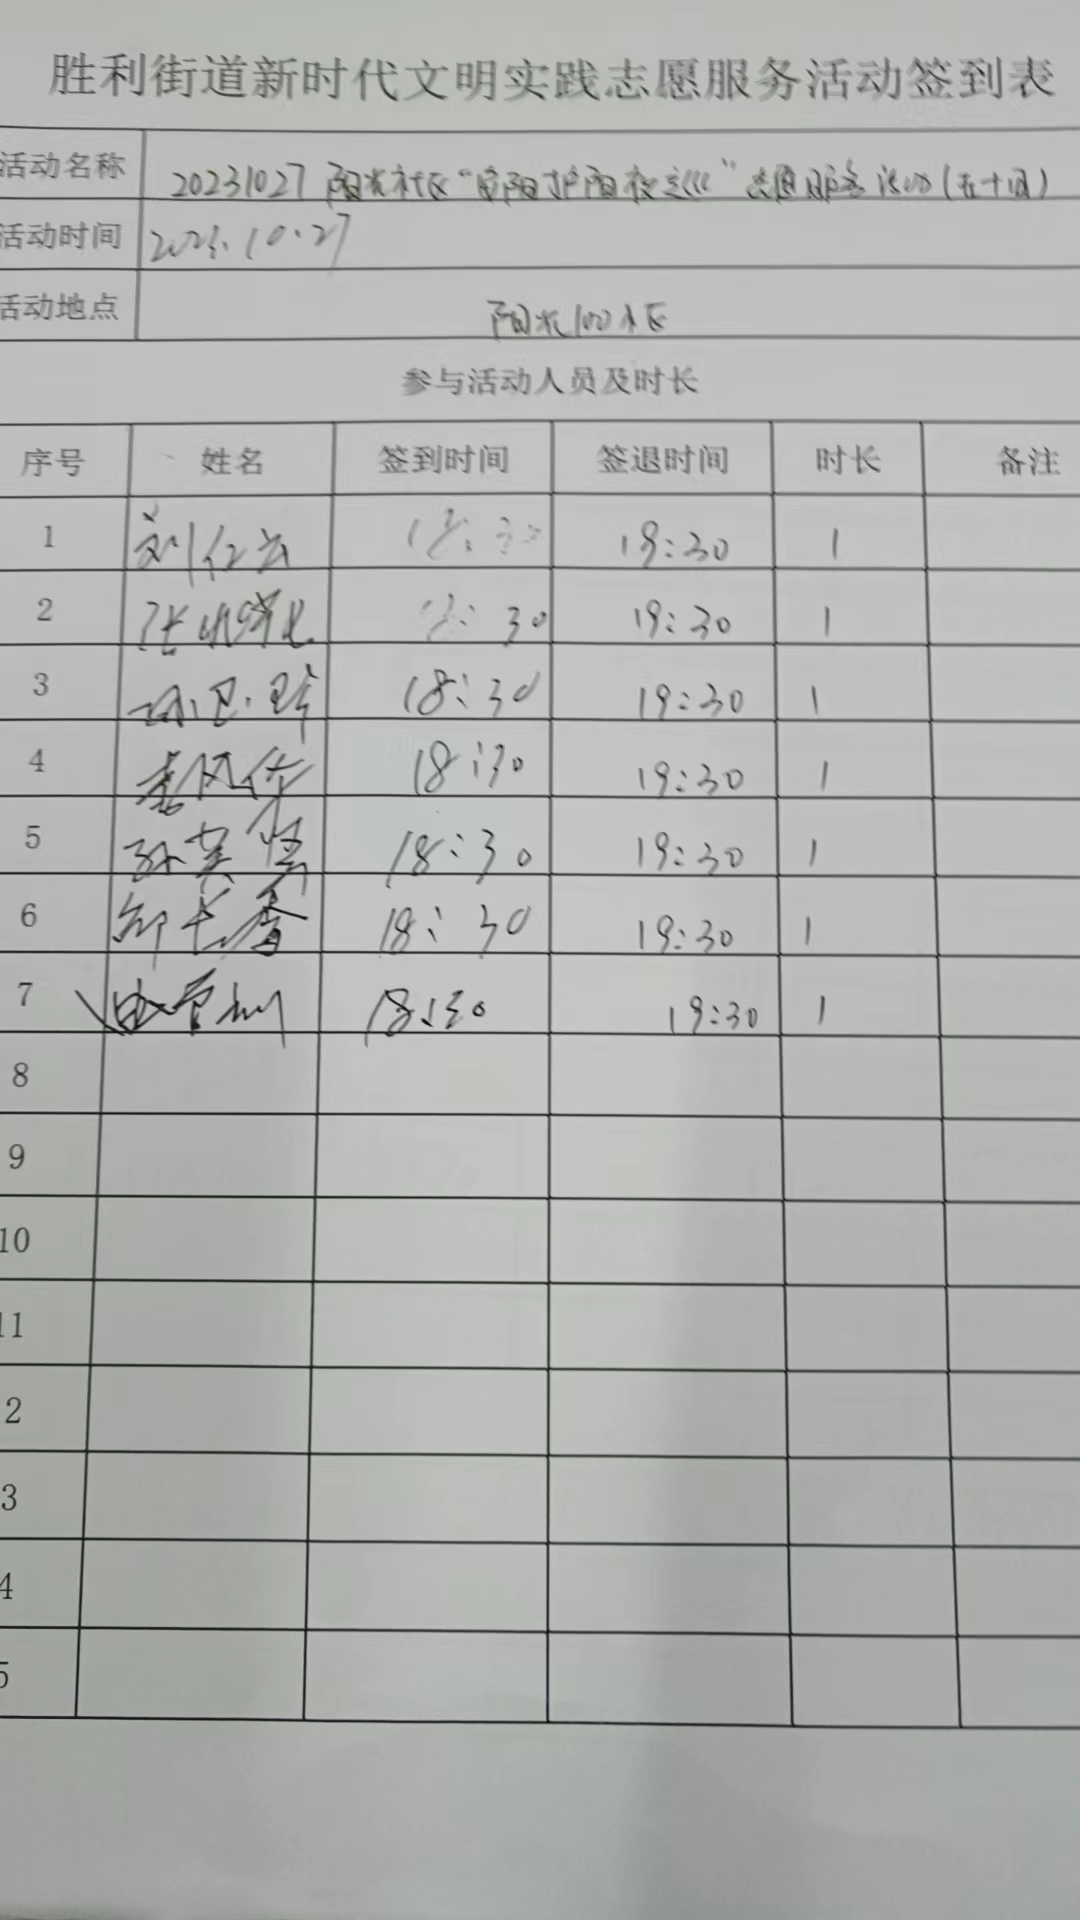 胜利街道新时代文明实践志愿服务活动签到表
活动名称 20231027 阳光社区“ 阳护阳夜巡”志愿服务活动(五十四)
活动时间 2023.10.27
活动地点 阳光100小区
参与活动人员及时长
序号 姓名 签到时间 签退时间 时长 备注
1 刘仁云 18:30 19:30 1
2 张 18:30 19:30 1
3 18:30 19:30 1
4 18:30 19:30 1
5 孙英 18:30 19:30 1
6 长香 18:30 19:30 1
7 18:30 19:30 1
8
9
10
11
2
3
4
5